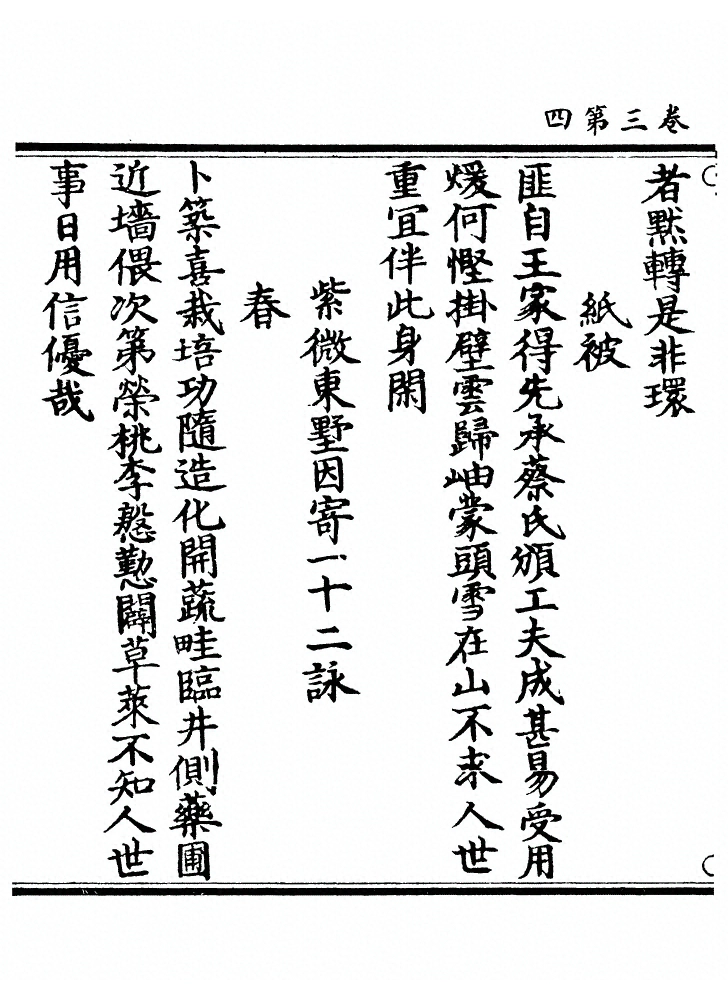 卷三第四
者黙轉是非環
紙被
匪自王家得先承蔡氏頒工夫成甚易受用
煖何慳掛壁雲歸岫蒙頭雪在山不求人世
重冝伴此身閑
紫微東墅因寄一十二詠
春
卜築喜栽培功隨造化開蔬畦臨井側藥圃
近墻偎次第榮桃李慇懃闢草萊不知人世
事日用信優哉